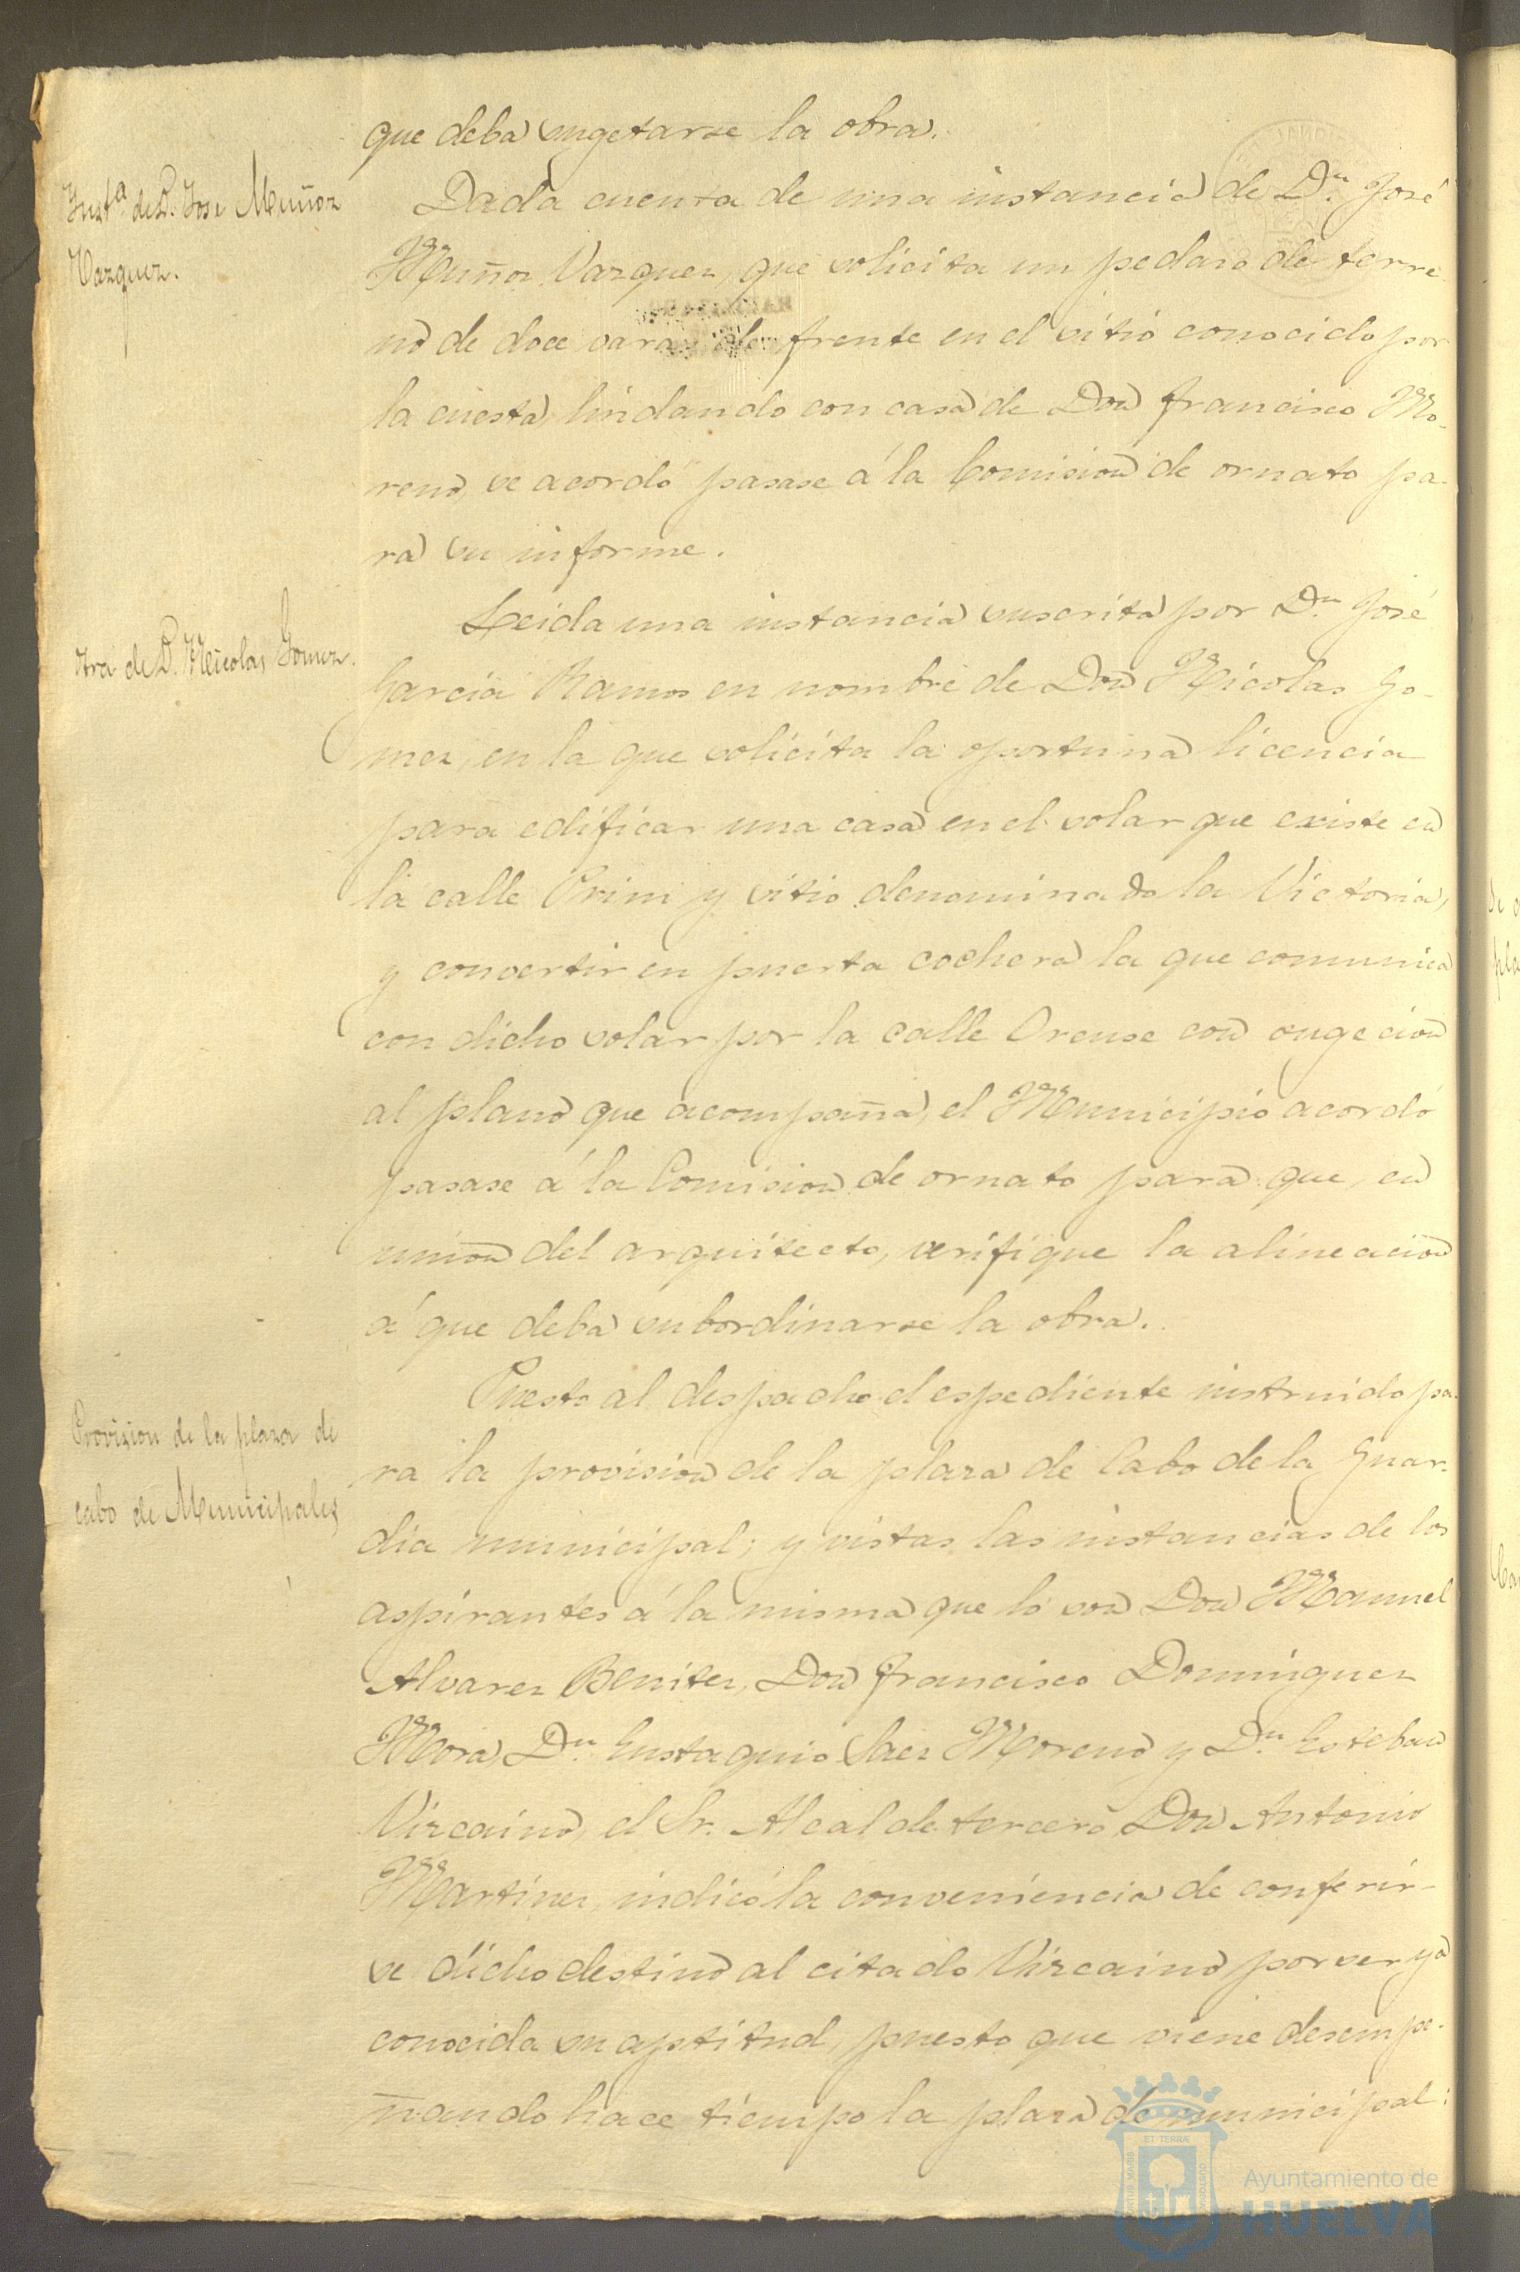 que deba sugetarse la obra.
Inst.ª de D. Jose Muñoz
Vazquez.
Dada cuenta de una instancia de D.n José
Muñoz Vazquez, que solicita un pedazo de terre
no de doce varas de frente en el sitio conocido por
la cuesta, lindando con casa de Don Francisco Mo-
reno, se acordó pasase á la Comision de ornato pa-
ra su informe.
Otra de D. Nicolas Gomez.
Leida una instancia suscrita por D.n José
Garcia Ramos en nombre de Don Nicolas Go-
mez, en la que solicita la oportuna licencia
para edificar una casa en el solar que existe en
la calle Prim y sitio denominado la Victoria,
y convertir en puerta cochera la que comunica
con dicho solar por la calle Orense con sugecion
al plano que acompaña, el Municipio acordó
pasase á la Comision de ornato para que, en
union del arquitecto, verifique la alineacion
á que deba subordinarse la obra.
Provision de la plaza de
cabo de Municipales
Puesto al despacho el espediente instruido pa-
ra la provision de la plaza de Cabo de la Guar-
dia municipal; y vistas las instancias de los
aspirantes á la misma que lo son Don Manuel
Alvarez Benitez, Don Francisco Dominguez
Mora, D.n Eustaquio Saez Moreno y D.n Esteban
Vizcaino, el Sr. Alcalde tercero Don Antonio
Martinez, indicó la conveniencia de conferir-
se dicho destino al citado Vizcaino por ser ya
conocida su aptitud, puesto que viene desempe-
ñando hace tiempo la plaza de municipal;
Ayuntamiento de
HUELVA